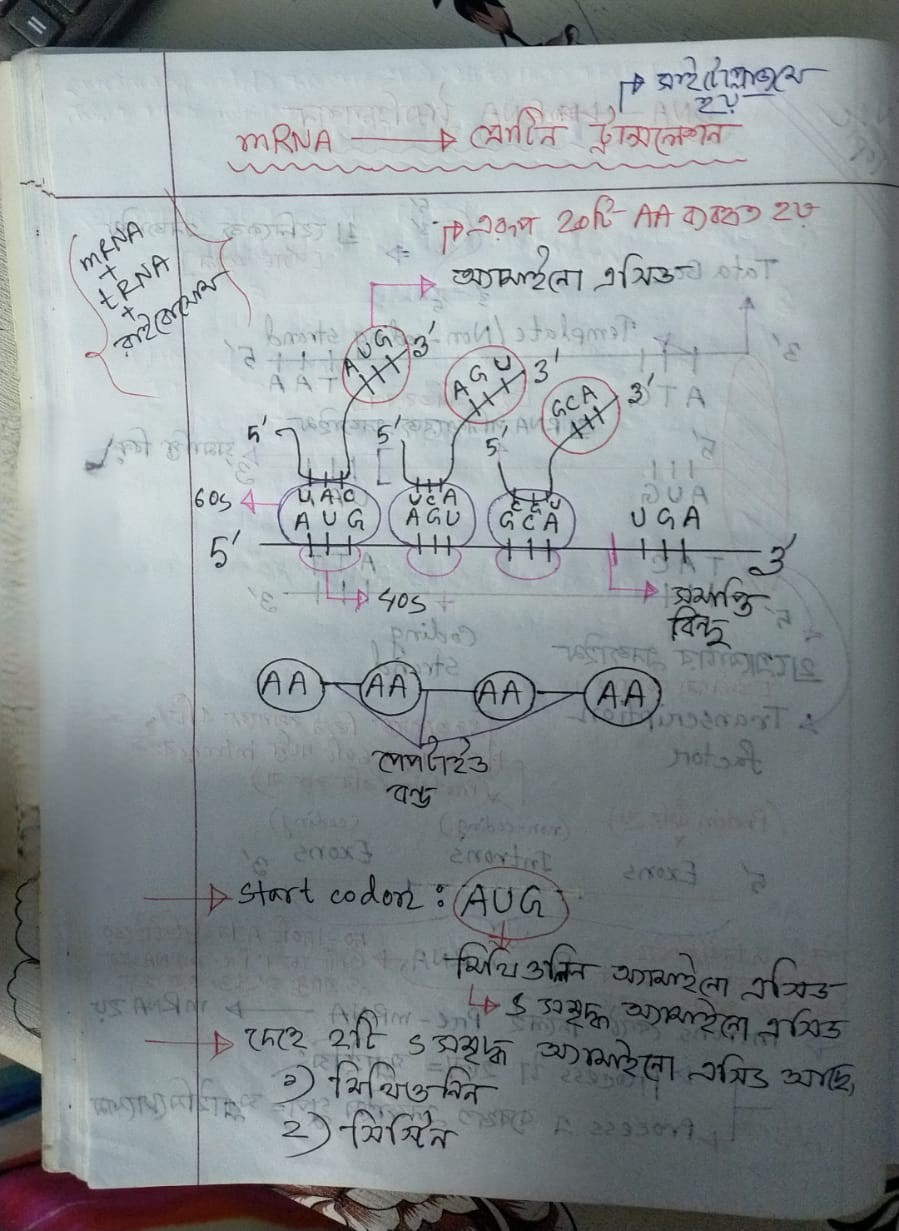 সাইটোপ্লাজমে
হয়
mRNA → প্রোটিন ট্রান্সলেশন
mRNA
+
tRNA
+
রাইবোসোম
এরূপ 20টি AA ব্যবহৃত হয়
অ্যামাইনো এসিড
AUG 3'
AGU 3'
GCA 3'
5' 5' 5'
60s
UAC UCA CGU
AUG AGU GCA UGA
5' 3'
40s
সমাপ্তি
বিন্দু
AA AA AA AA
পেপটাইড
বন্ড
Start codon : AUG
মিথিওনিন অ্যামাইনো এসিড
S সমৃদ্ধ অ্যামাইনো এসিড
দেহে ২টি S সমৃদ্ধ অ্যামাইনো এসিড আছে,
১) মিথিওনিন
২) সিস্টিন